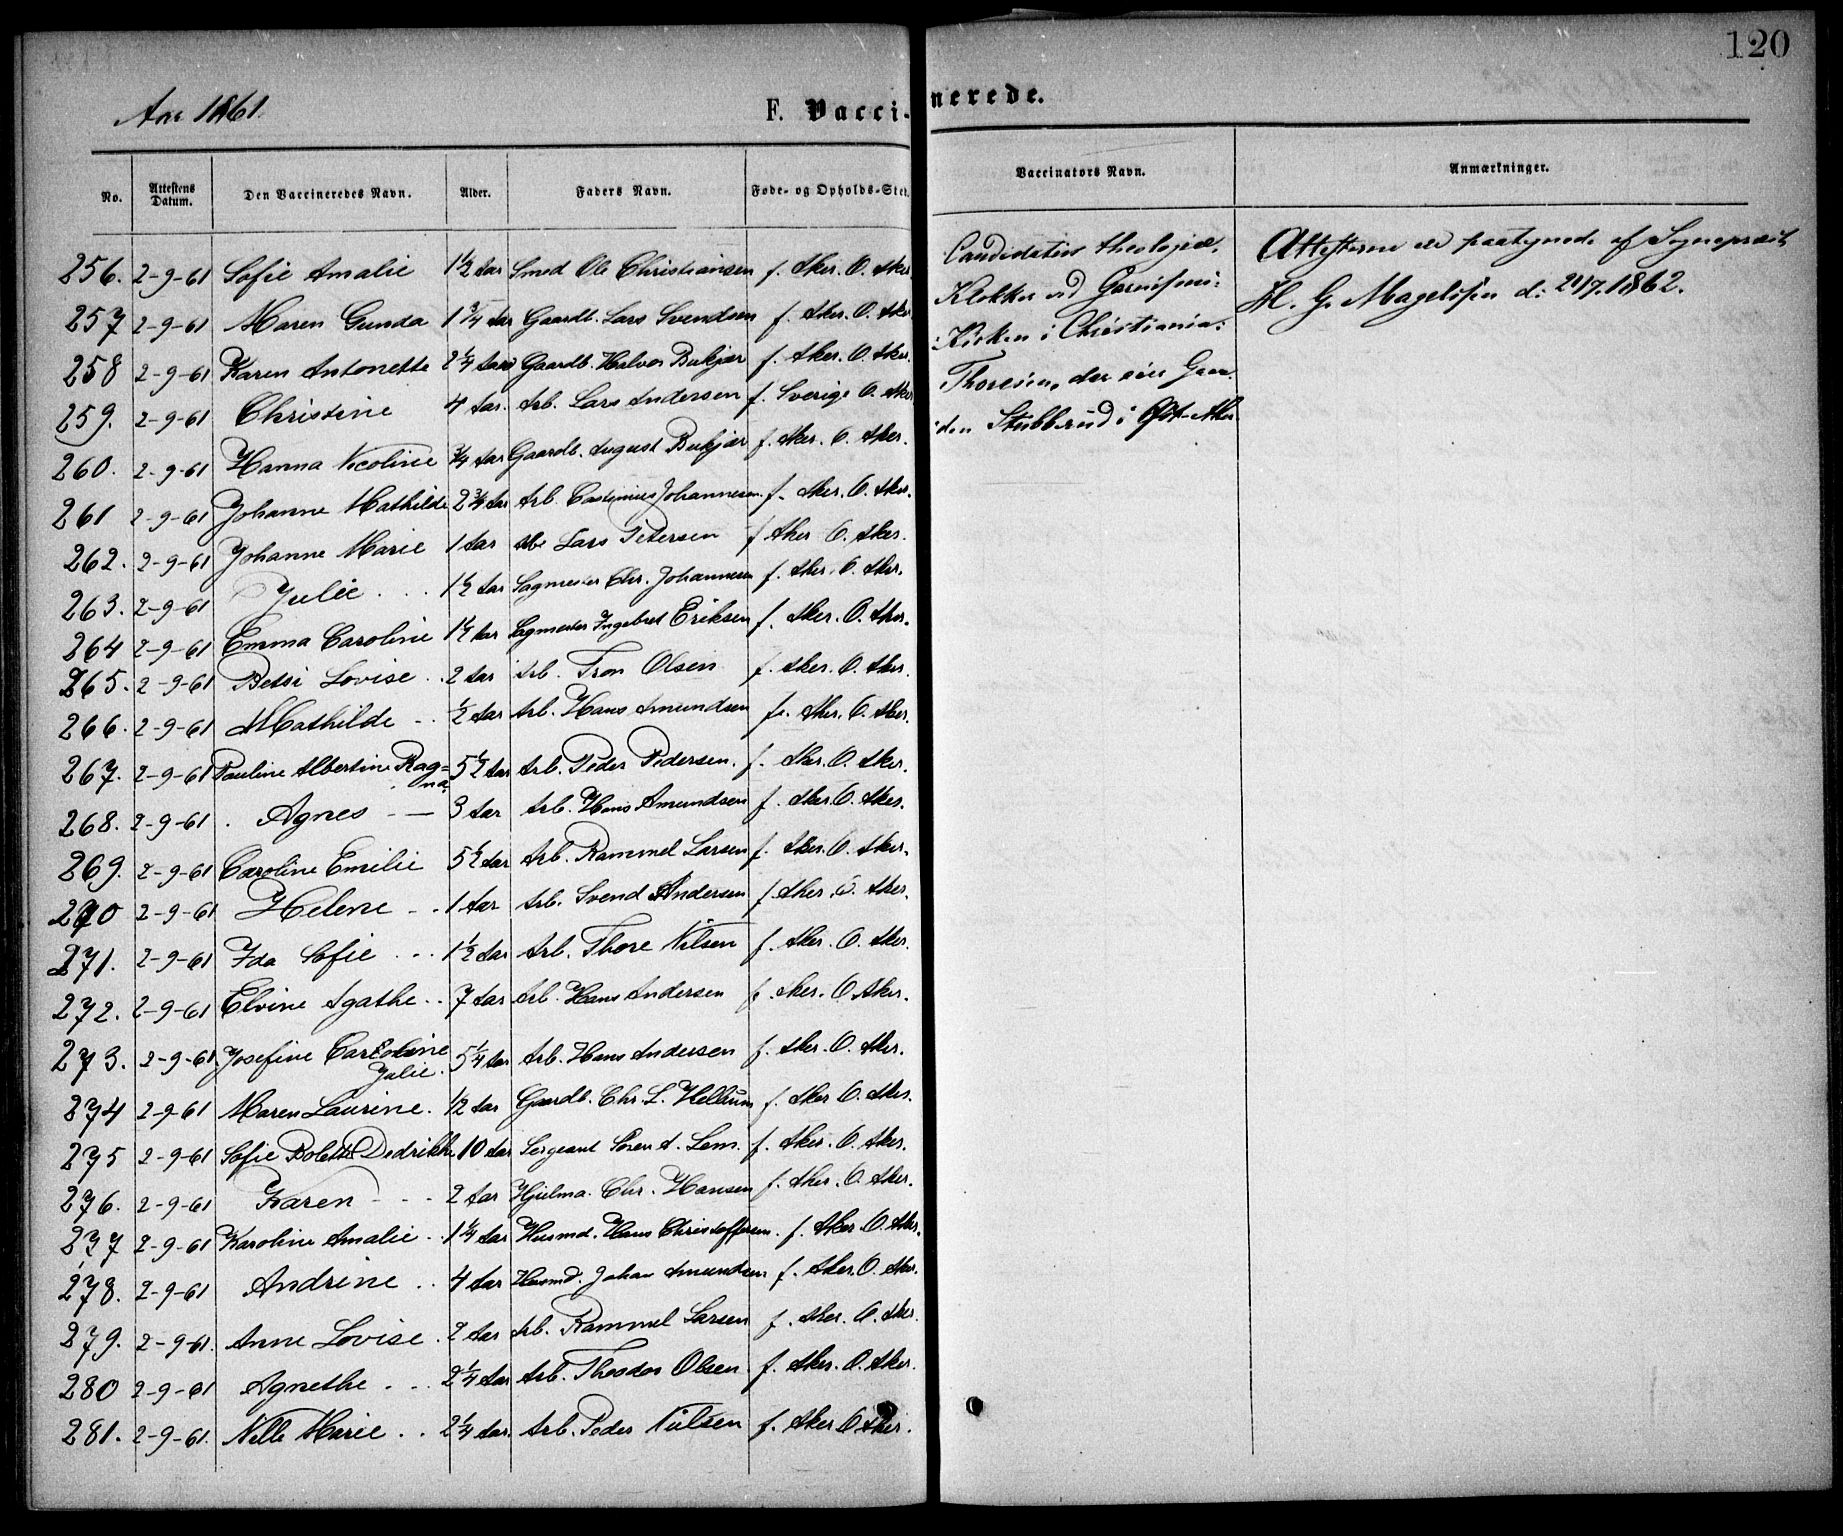 120
Aar 1861.
F. Vacci-nerede.
No. Attestens Datum. Den Vaccineredes Navn. Alder. Faders Navn. Føde- og Opholds-Sted. Vaccinators Navn. Anmærkninger.
256. 2-9-61 Sofie Amalie 1 1/2 Aar Smed Ole Christiansen f. Aker. O. Aker
257 2-9-61 Maren Gunda 1 3/4 Aar Gaardb. Lars Svendsen f. Aker. O. Aker
258 2-9-61 Karen Antonette 2 1/4 Aar Gaardb. Halvor Bukjær f. Aker. O. Aker.
259. 2-9-61 Christine 4 Aar. Arb. Lars Andersen f. Sverige O. Aker
260. 2-9-61 Hanna Nicoline 3/4 Aar Gaardb. August Bukjær f. Aker. O. Aker.
261 2-9-61 Johanne Mathilde 2 3/4 Aar Arb. Johannesen f. Aker. O. Aker.
262. 2-9-61 Johanne Marie 1 Aar Lars Petersen f Aker O. Aker.
263. 2-9-61 Julie . . . 1 1/2 Aar Sagmester Chr. Johannesen f. Aker. O. Aker.
264 2-9-61 Emma Caroline 1 1/2 Aar Sagmester Ingebret Eriksen f. Aker. O. Aker.
265. 2-9-61 Betsi Lovise . . 2 Aar Arb. Tron Olsen f. Aker. O. Aker.
266. 2-9-61 Mathilde - . 1/2 Aar Arb. Hans Amundsen f. Aker. O. Aker.
267. 2-9-61 Pauline Albertine Rag=
na 5 1/2 Aar Arb. Peder Pedersen. f. Aker. O. Aker.
268. 2-9-61 . Agnes - — 3 Aar Arb. Hans Amundsen f. Aker O. Aker.
269. 2-9-61 Caroline Emilie 5 1/2 Aar Arb. Rammel Larsen f. Aker. O. Aker.
270 2-9-61 Helene - . 1 Aar Arb. Svend Andersen f. Aker. O. Aker.
271. 2-9-61 Ida Sofie . . . 1 1/2 Aar Arb. Thore Nilsen f. Aker. O. Aker.
272. 2-9-61 Elvine Agathe . . 7 Aar Arb. Hans Andersen f. Aker. O. Aker.
273. 2-9-61 Josefine Caroline
Julie. 5 1/4 Aar Arb. Hans Andersen f. Aker. O. Aker.
274 2-9-61 Maren Laurine. 1/2 Aar Gaardb. Chr. L. Hellum f. Aker O. Aker.
275 2-9-61 Sofie Bolette Dedrikke 10 Aar Sergeant Søren A. Lem. f. Aker. O. Aker.
276. 2-9-61 Karen - - - 2 Aar Hjulma. Chr. Hansen f. Aker. O. Aker.
237 2-9-61 Karoline Amalie . 1 1/4 Aar Husmd. Hans Christoffersen. f. Aker. O. Aker.
278. 2-9-61 Andrine . . 4 Aar Husmd. Johan Amundsen f. Aker. O. Aker.
279. 2-9-61. Anne Lovise . 2 Aar Arb. Rammel Larsen f. Aker. O. Aker.
280 2-9-61 Agnethe . . . 2 1/4 Aar Arb. Theodor Olsen. f. Aker. O. Aker.
281. 2-9-61. Nelle Marie . . 2 1/4 Aar. Arb. Peder Nielsen f. Aker O Aker.
Candidatus theologiæ,
Klokker ved Garnisons:
:Kirken i Christiania:
Thoresen, der eier Gaar
:den Stubberud i Øst-Aker
Attesterne ere paategnede af Sognepræst
H. G. Magelssen d: 21/7. 1862.